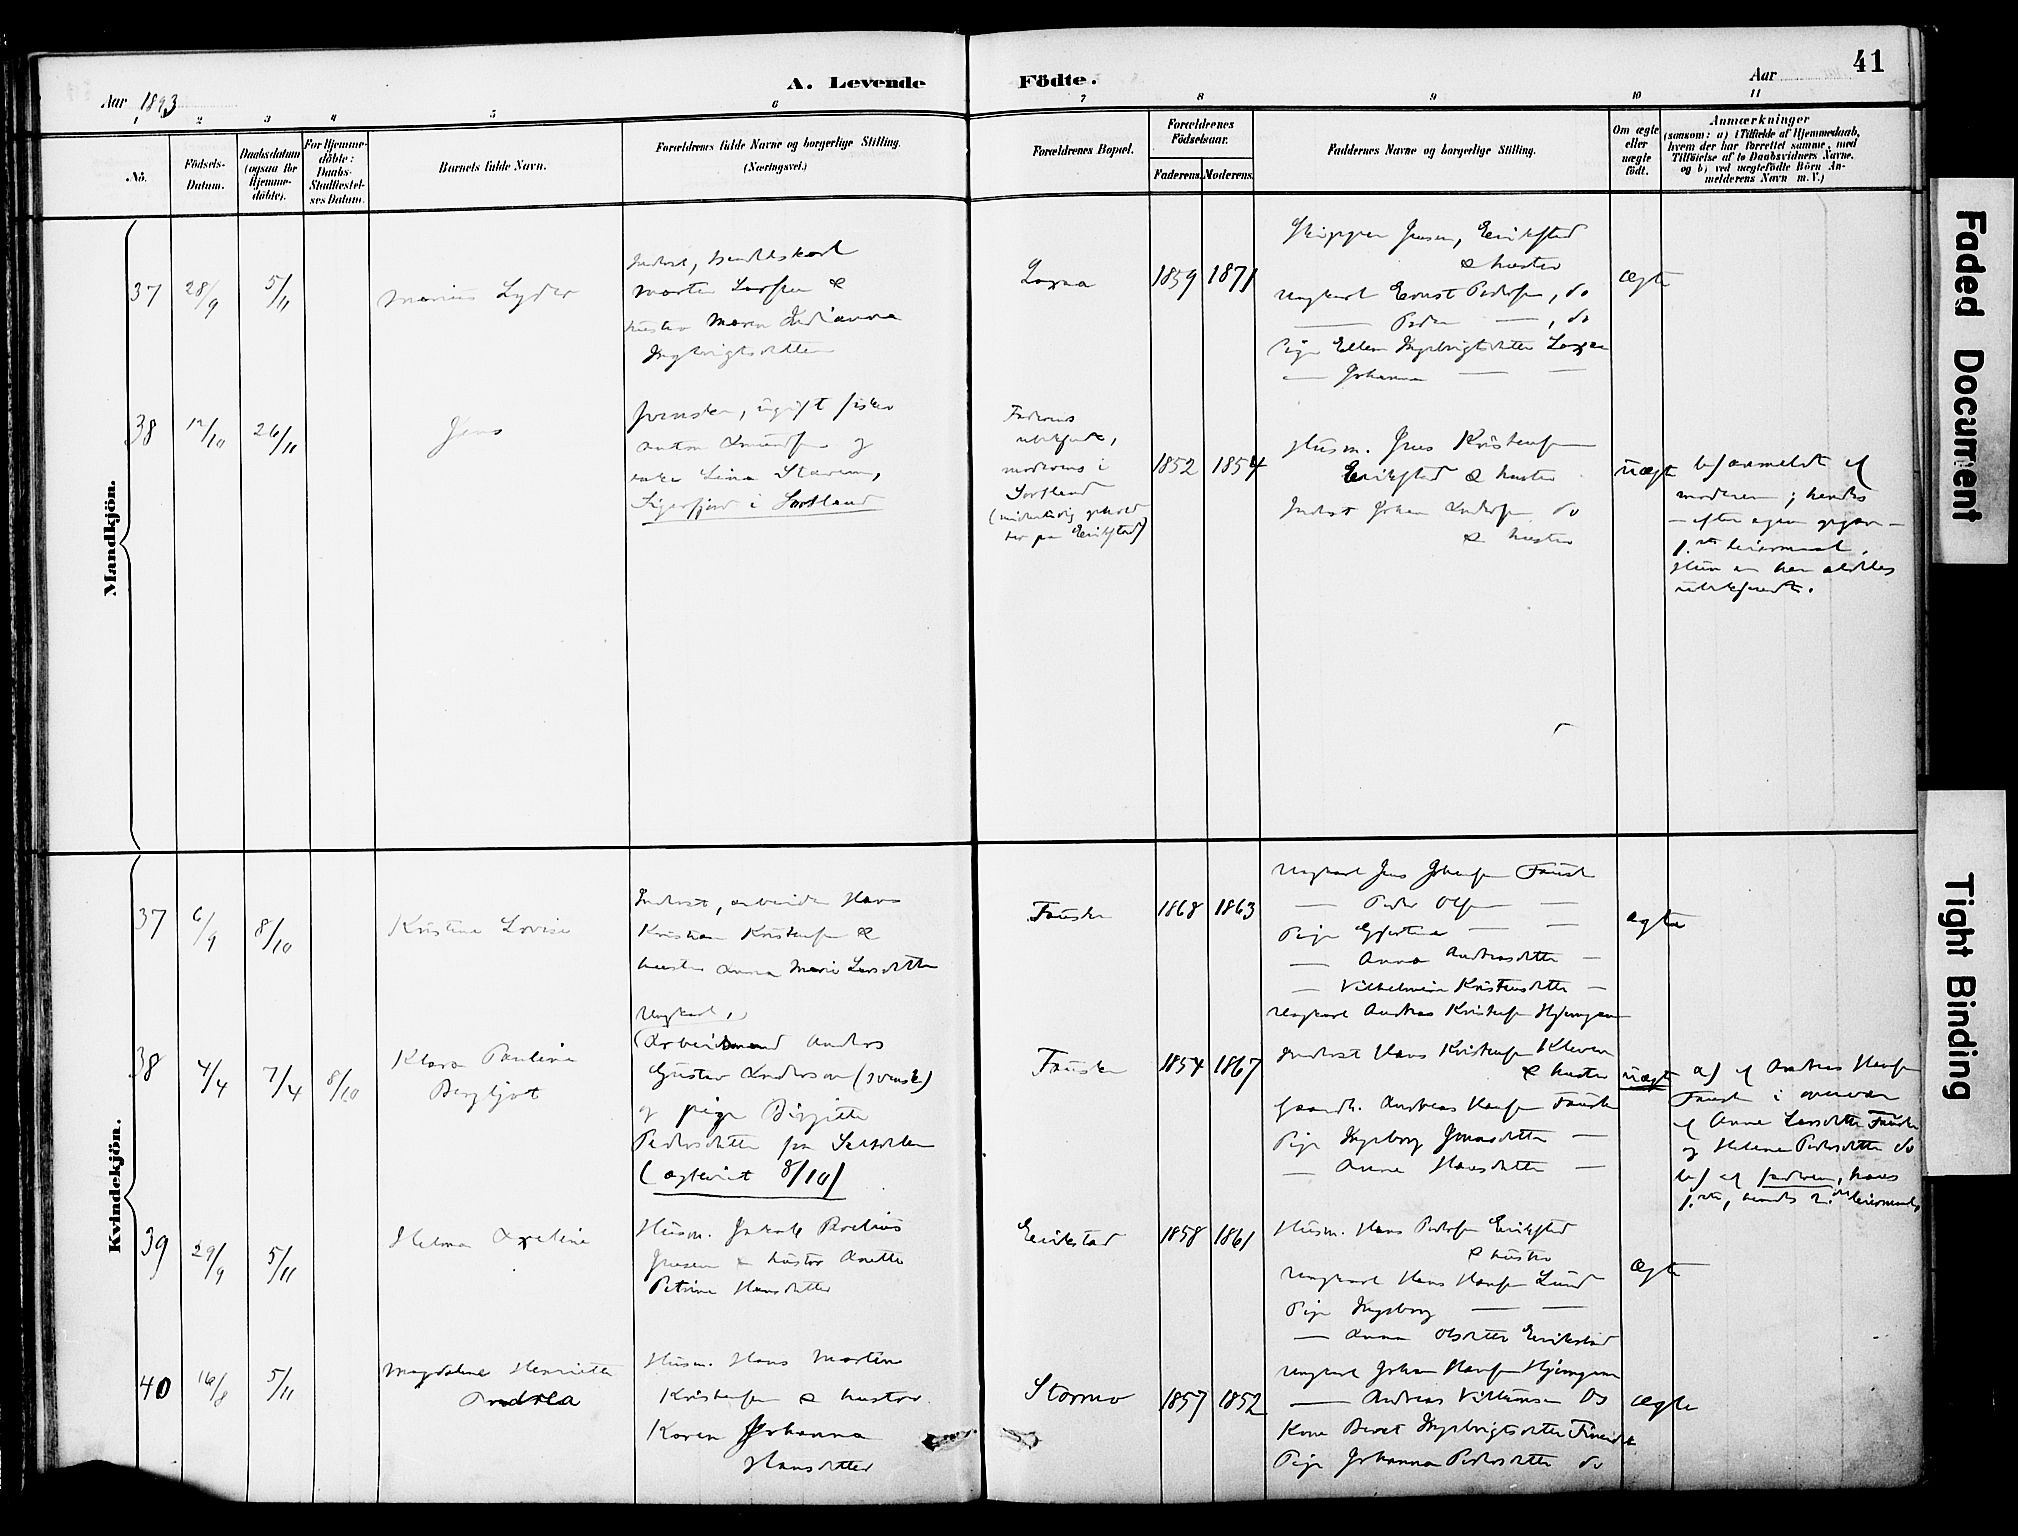 41
A. Levende Födte.
Aar 1893
Aar
1 2 3 4 5 6 7 8 9 10 11
No.
Födsels-
Datum.
Daabsdatum
(ogsaa for
Hjemme-
döbte).
For Hjemme-
döbte:
Daabs-
Stadfæstel-
ses Datum.
Barnets fulde Navn.
Forældrenes fulde Navne og borgerlige Stilling.
(Næringsvei.)
Forældrenes Bopæl.
Forældrenes
Födselsaar.
Faderens. Moderens.
Faddernes Navne og borgerlige Stilling.
Om ægte
eller
uægte
födt.
Anmærkninger
(saasom: a) i Tilfælde af Hjemmedaab,
hvem der har forrettet samme, med
Tilföielse af to Daabsvidners Navne,
og b) ved uægtefödte Börn An-
melderens Navn m. V.)
Mandkjön.
37
28/9
5/11
Marius Lyder
Morten &
hustru Maren
1859 1871
& hustru
Ungkarl Ernst Pedersen, do
Peder , do
Pige Ellen
Johanna
ægte
38
12/10
26/11
Jens
ugift fisker
Anton og
enke Lina
Sigerfjord i Sortland
Faderens
ubekjendt,
moderens i
Sortland
1852 1854
Husm. Jens Kristensen
Erikstad & hustru
Inderst Johan do
& hustru
uægte
b) anmeldt af
moderen; hendes
efter egen
1.ste leiermaal.
Hun er her aldeles
ubekjendt.
Kvindekjön.
37
6/9
8/10
Kristine Lovise
Inderst, arbeider Hans
Kristian Kristensen &
hustru Anna Marie Larsdatter
Fauske
1868 1863
Ungkarl Jens Johansen Fauske
Peder Olsen
Pige
Anna Andreasdatter
Vilhelmine Kristensdatter
Ungkarl Andreas Kristensen Hjemgam
ægte
38
4/4
7/4
8/10
Klara Pauline
Bergljot
Ungkarl,
(Arbeidsmand Anders
Gustav Anderson (svensk)
og pige Birgitte
Pedersdatter fra
(ægteviet 8/10)
Fauske
1854 1867
Inderst Hans Kristensen Kleven
& hustru
Gaardb. Andreas Hansen Fauske
Pige Ingeborg Jonasdatter
Anne Hansdatter
uægte
a) af Andreas Hansen
Fauske i overvær
af Anne Larsdatter Fauske
og Helene Pedersdatter do
b) af faderen, hans
1.ste, hendes 2.det leiermaal
39
29/9
5/11
Helma Axeline
Husm. Jakob
Jensen & hustru Anette
Petrine Hansdatter
Erikstad
1858 1861
Husm. Hans Pedersen Erikstad
& hustru
Ungkarl Hans Hansen Lund
Pige Ingeborg
Anna Olsdatter Erikstad
ægte
40
16/8
5/11
Magdalene Henriette
Andrea
Husm. Hans Morten
Kristensen & hustru
Karen Johanna
Hansdatter
Stormo
1857 1852
Ungkarl Johan Hansen Hjemgam
Andreas
Kone Beret Ingebrigtsdatter
Pige Johanna Pedersdatter do
ægte
Faded Document
Tight Binding